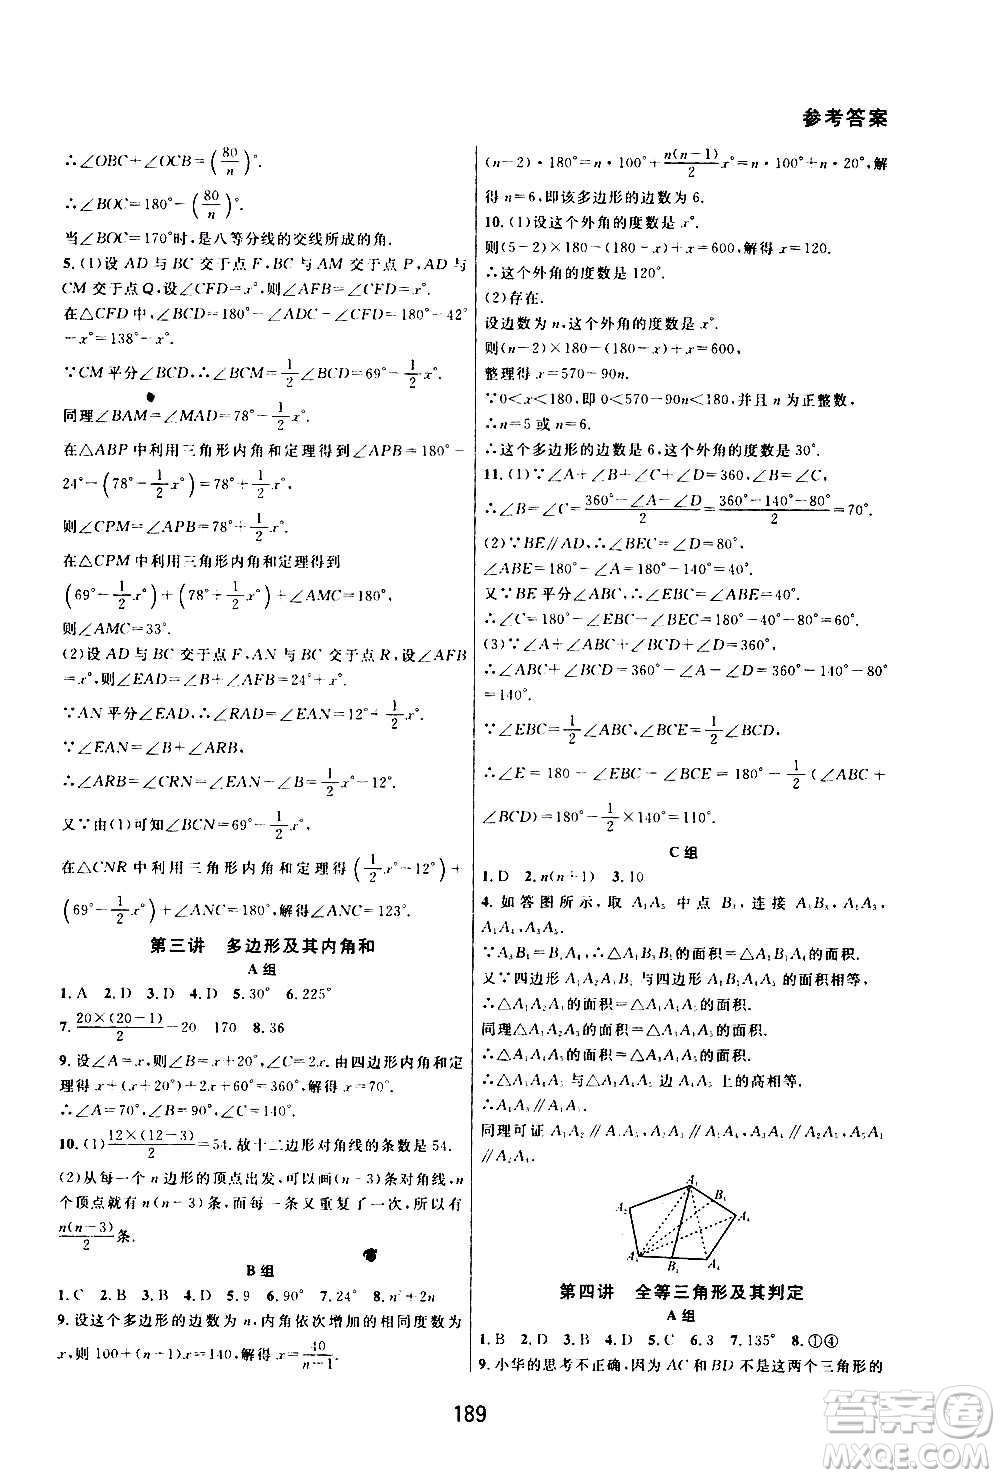 参考答案
∴∠OBC+∠OCB=(80/n)°.
∴∠BOC=180°-(80/n)°.
当∠BOC=170°时,是八等分线的交线所成的角.
5.(1)设 AD 与 BC 交于点 F,BC 与 AM 交于点 P,AD 与
CM 交于点 Q,设∠CFD=x°,则∠AFB=∠CFD=x°.
在△CFD 中,∠BCD=180°-∠ADC-∠CFD=180°-42°
-x°=138°-x°.
∵CM 平分∠BCD,∴∠BCM=1/2∠BCD=69°-1/2x°.
同理∠BAM=∠MAD=78°-1/2x°.
在△ABP 中利用三角形内角和定理得∠APB=180°-
24°-(78°-1/2x°)=78°+1/2x°.
则∠CPM=∠APB=78°+1/2x°.
在△CPM 中利用三角形内角和定理得到
(69°-1/2x°)+(78°+1/2x°)+∠AMC=180°,
则∠AMC=33°.
(2)设 AD 与 BC 交于点 F,AN 与 BC 交于点 R,设∠AFB
=x°,则∠EAD=∠B+∠AFB=24°+x°.
∵AN 平分∠EAD,∴∠RAD=∠EAN=12°+1/2x°.
∵∠EAN=∠B+∠ARB,
∴∠ARB=∠CRN=∠EAN-∠B=1/2x°-12°.
又∵由(1)可知∠BCN=69°-1/2x°,
在△CNR 中利用三角形内角和定理得(1/2x°-12°)+
(69°-1/2x°)+∠ANC=180°,解得∠ANC=123°.
第三讲 多边形及其内角和
A 组
1.A 2.D 3.D 4.D 5.30° 6.225°
7.20×(20-1)/2-20 170 8.36
9.设∠A=x,则∠B=x+20°,∠C=2x.由四边形内角和定
理得x+(x+20°)+2x+60°=360°,解得x=70°.
∴∠A=70°,∠B=90°,∠C=140°.
10.(1)12×(12-3)/2=54.故十二边形对角线的条数是 54.
(2)从每一个 n 边形的顶点出发,可以画(n-3)条对角线,n
个顶点就有 n(n-3)条,但是每一条又重复了一次,所以有
n(n-3)/2条.
B 组
1.C 2.C 3.B 4.D 5.9 6.90° 7.24° 8.n²+2n
9.设这个多边形的边数为 n,内角依次增加的相同度数为
x,则 100+(n-1)x=140,解得 x=40/(n-1).
(n-2)·180°=n·100°+n(n-1)/2 x°=n·100°+n·20°,解
得 n=6,即该多边形的边数为 6.
10.(1)设这个外角的度数是 x°.
则(5-2)×180-(180-x)+x=600,解得 x=120.
∴这个外角的度数是 120°.
(2)存在.
设边数为 n,这个外角的度数是 x°.
则(n-2)×180-(180-x)+x=600,
整理得 x=570-90n.
∵0<x<180,即 0<570-90n<180,并且 n 为正整数,
∴n=5 或 n=6.
∴这个多边形的边数是 6,这个外角的度数是 30°.
11.(1)∵∠A+∠B+∠C+∠D=360,∠B=∠C,
∴∠B=∠C=(360°-∠A-∠D)/2=(360°-140°-80°)/2=70°.
(2)∵BE∥AD,∴∠BEC=∠D=80°,
∠ABE=180°-∠A=180°-140°=40°.
又∵BE 平分∠ABC,∴∠EBC=∠ABE=40°.
∴∠C=180°-∠EBC-∠BEC=180°-40°-80°=60°.
(3)∵∠A+∠ABC+∠BCD+∠D=360°,
∴∠ABC+∠BCD=360°-∠A-∠D=360°-140°-80°
=140°.
∵∠EBC=1/2∠ABC,∠BCE=1/2∠BCD,
∴∠E=180-∠EBC-∠BCE=180°-1/2(∠ABC+
∠BCD)=180°-1/2×140°=110°.
C 组
1.D 2.n(n+1) 3.10
4.如答图所示,取 A₁A₅ 中点 B₁,连接 A₁B₃,A₁A₃,
A₃A₅.
又∵四边形 A₁A₂A₃B₁ 与四边形的面积相等,
第四讲 全等三角形及其判定
A 组
1.B 2.D 3.D 4.D 5.C 6.3 7.135° 8.①④
9.小华的思考不正确,因为 AC 和 BD 不是这两个三角形的
189
答案圈
MXQE.COM